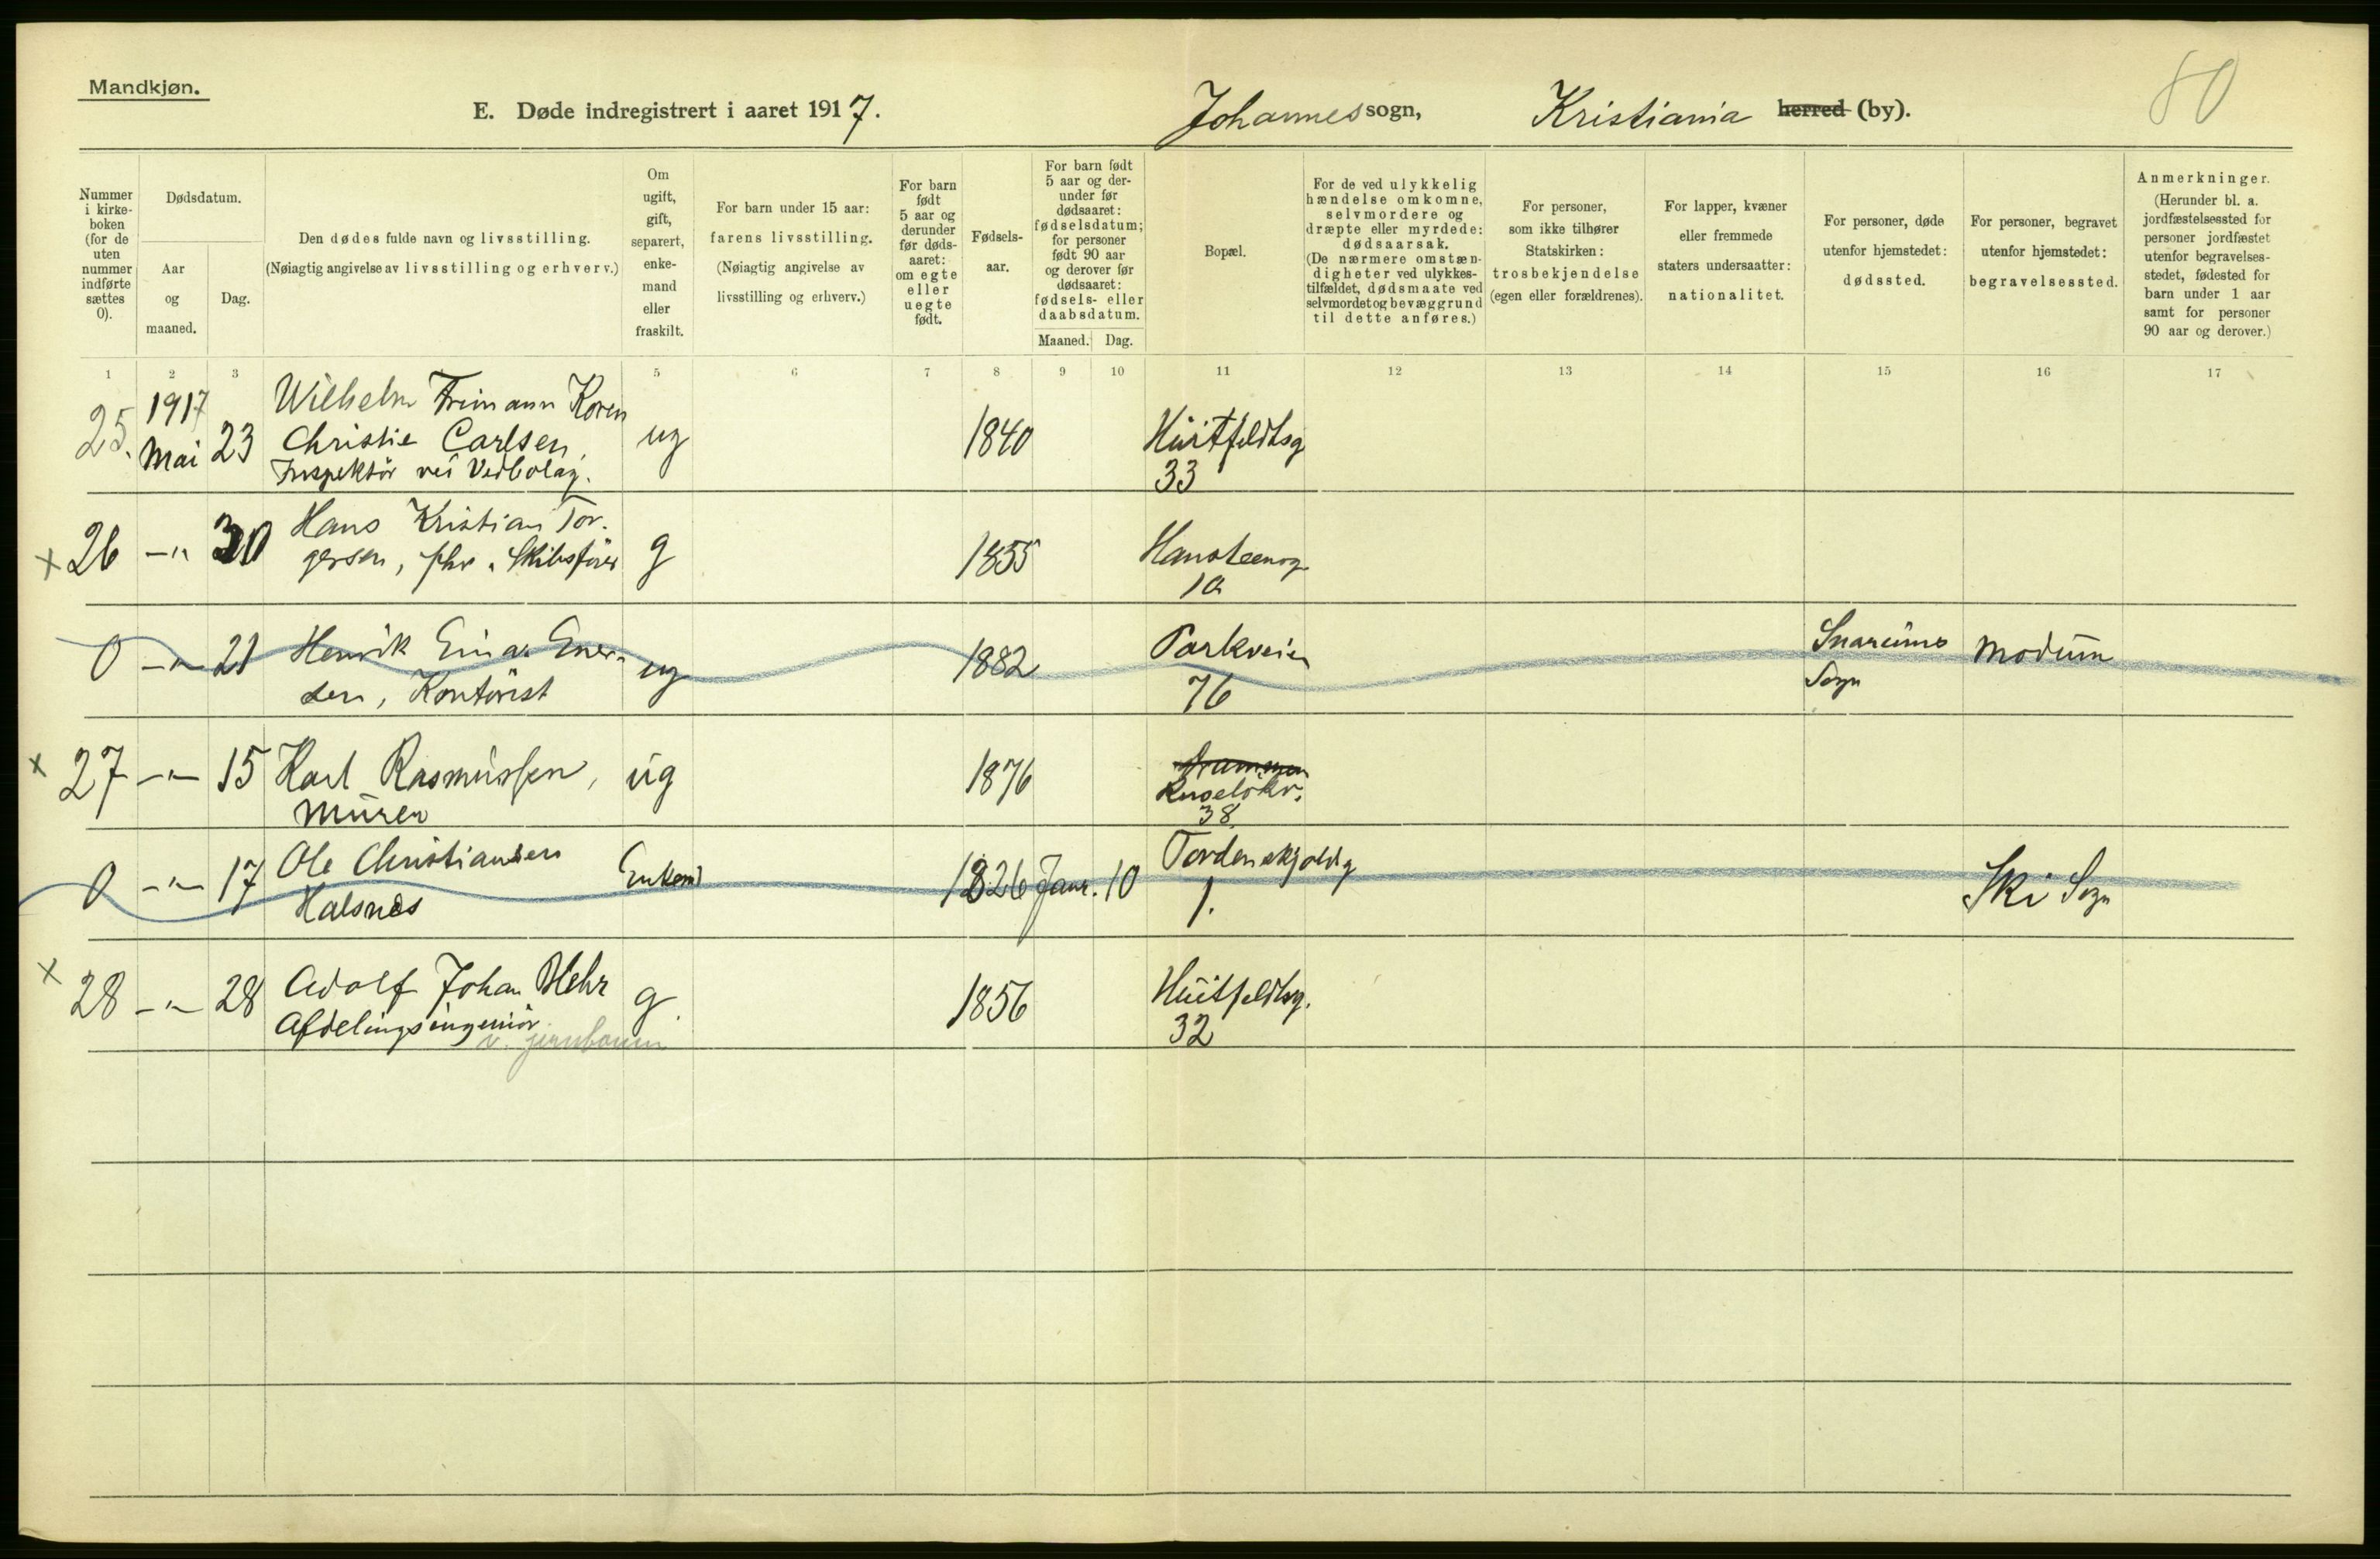 Mandkjøn.
80
E. Døde indregistrert i aaret 1917. Johannes sogn, Kristiania herred (by).
Nummer i kirkeboken (for de uten nummer indførte sættes 0).
Dødsdatum.
Aar og maaned.
Dag.
Den dødes fulde navn og livsstilling.
(Nøiagtig angivelse av livsstilling og erhverv.)
Om ugift, gift, separert, enkemand eller fraskilt.
For barn under 15 aar: farens livsstilling.
(Nøiagtig angivelse av livsstilling og erhverv.)
For barn født 5 aar og derunder før dødsaaret: om egte eller uegte født.
Fødselsaar.
For barn født 5 aar og derunder før dødsaaret: fødselsdatum; for personer født 90 aar og derover før dødsaaret: fødsels- eller daabsdatum.
Maaned. Dag.
Bopæl.
For de ved ulykkelig hændelse omkomne, selvmordere og dræpte eller myrdede: dødsaarsak.
(De nærmere omstændigheter ved ulykkestilfældet, dødsmaate ved selvmordet og bevæggrund til dette anføres.)
For personer, som ikke tilhører Statskirken: trosbekjendelse (egen eller forældrenes).
For lapper, kvæner eller fremmede staters undersaatter: nationalitet.
For personer, døde utenfor hjemstedet: dødssted.
For personer, begravet utenfor hjemstedet: begravelsessted.
Anmerkninger.
(Herunder bl. a. jordfæstelsessted for personer jordfæstet utenfor begravelsesstedet, fødested for barn under 1 aar samt for personer 90 aar og derover.)
1 2 3 5 6 7 8 9 10 11 12 13 14 15 16 17
25. 1917 Mai 23 Wilhelm Frimann Koren
Christie Carlsen, ug 1840 Huitfeldtsg
Inspektör ved Vedbolag. 33
x 26 -"- 30 Hans Kristian Tor-
gersen, fhv. Skibsförer g 1855 Hansteensg
10
0 -"- 21 Henrik Einar Ener-
sen, Kontorist ug 1882 Parkveien 76 Snarums Sogn Modum
x 27 -"- 15 Karl Rasmussen, ug 1876
Murer Ruseløkv. 38
0 -"- 17 Ole Christiansen Enkem 1826 Janr. 10 Tordenskjoldsg
Halsnes 1. Ski Sogn
x 28 -"- 28 Adolf Johan Hehr g 1856 Huitfeldtsg.
Afdelingsingeniör 32
v. jernbanen